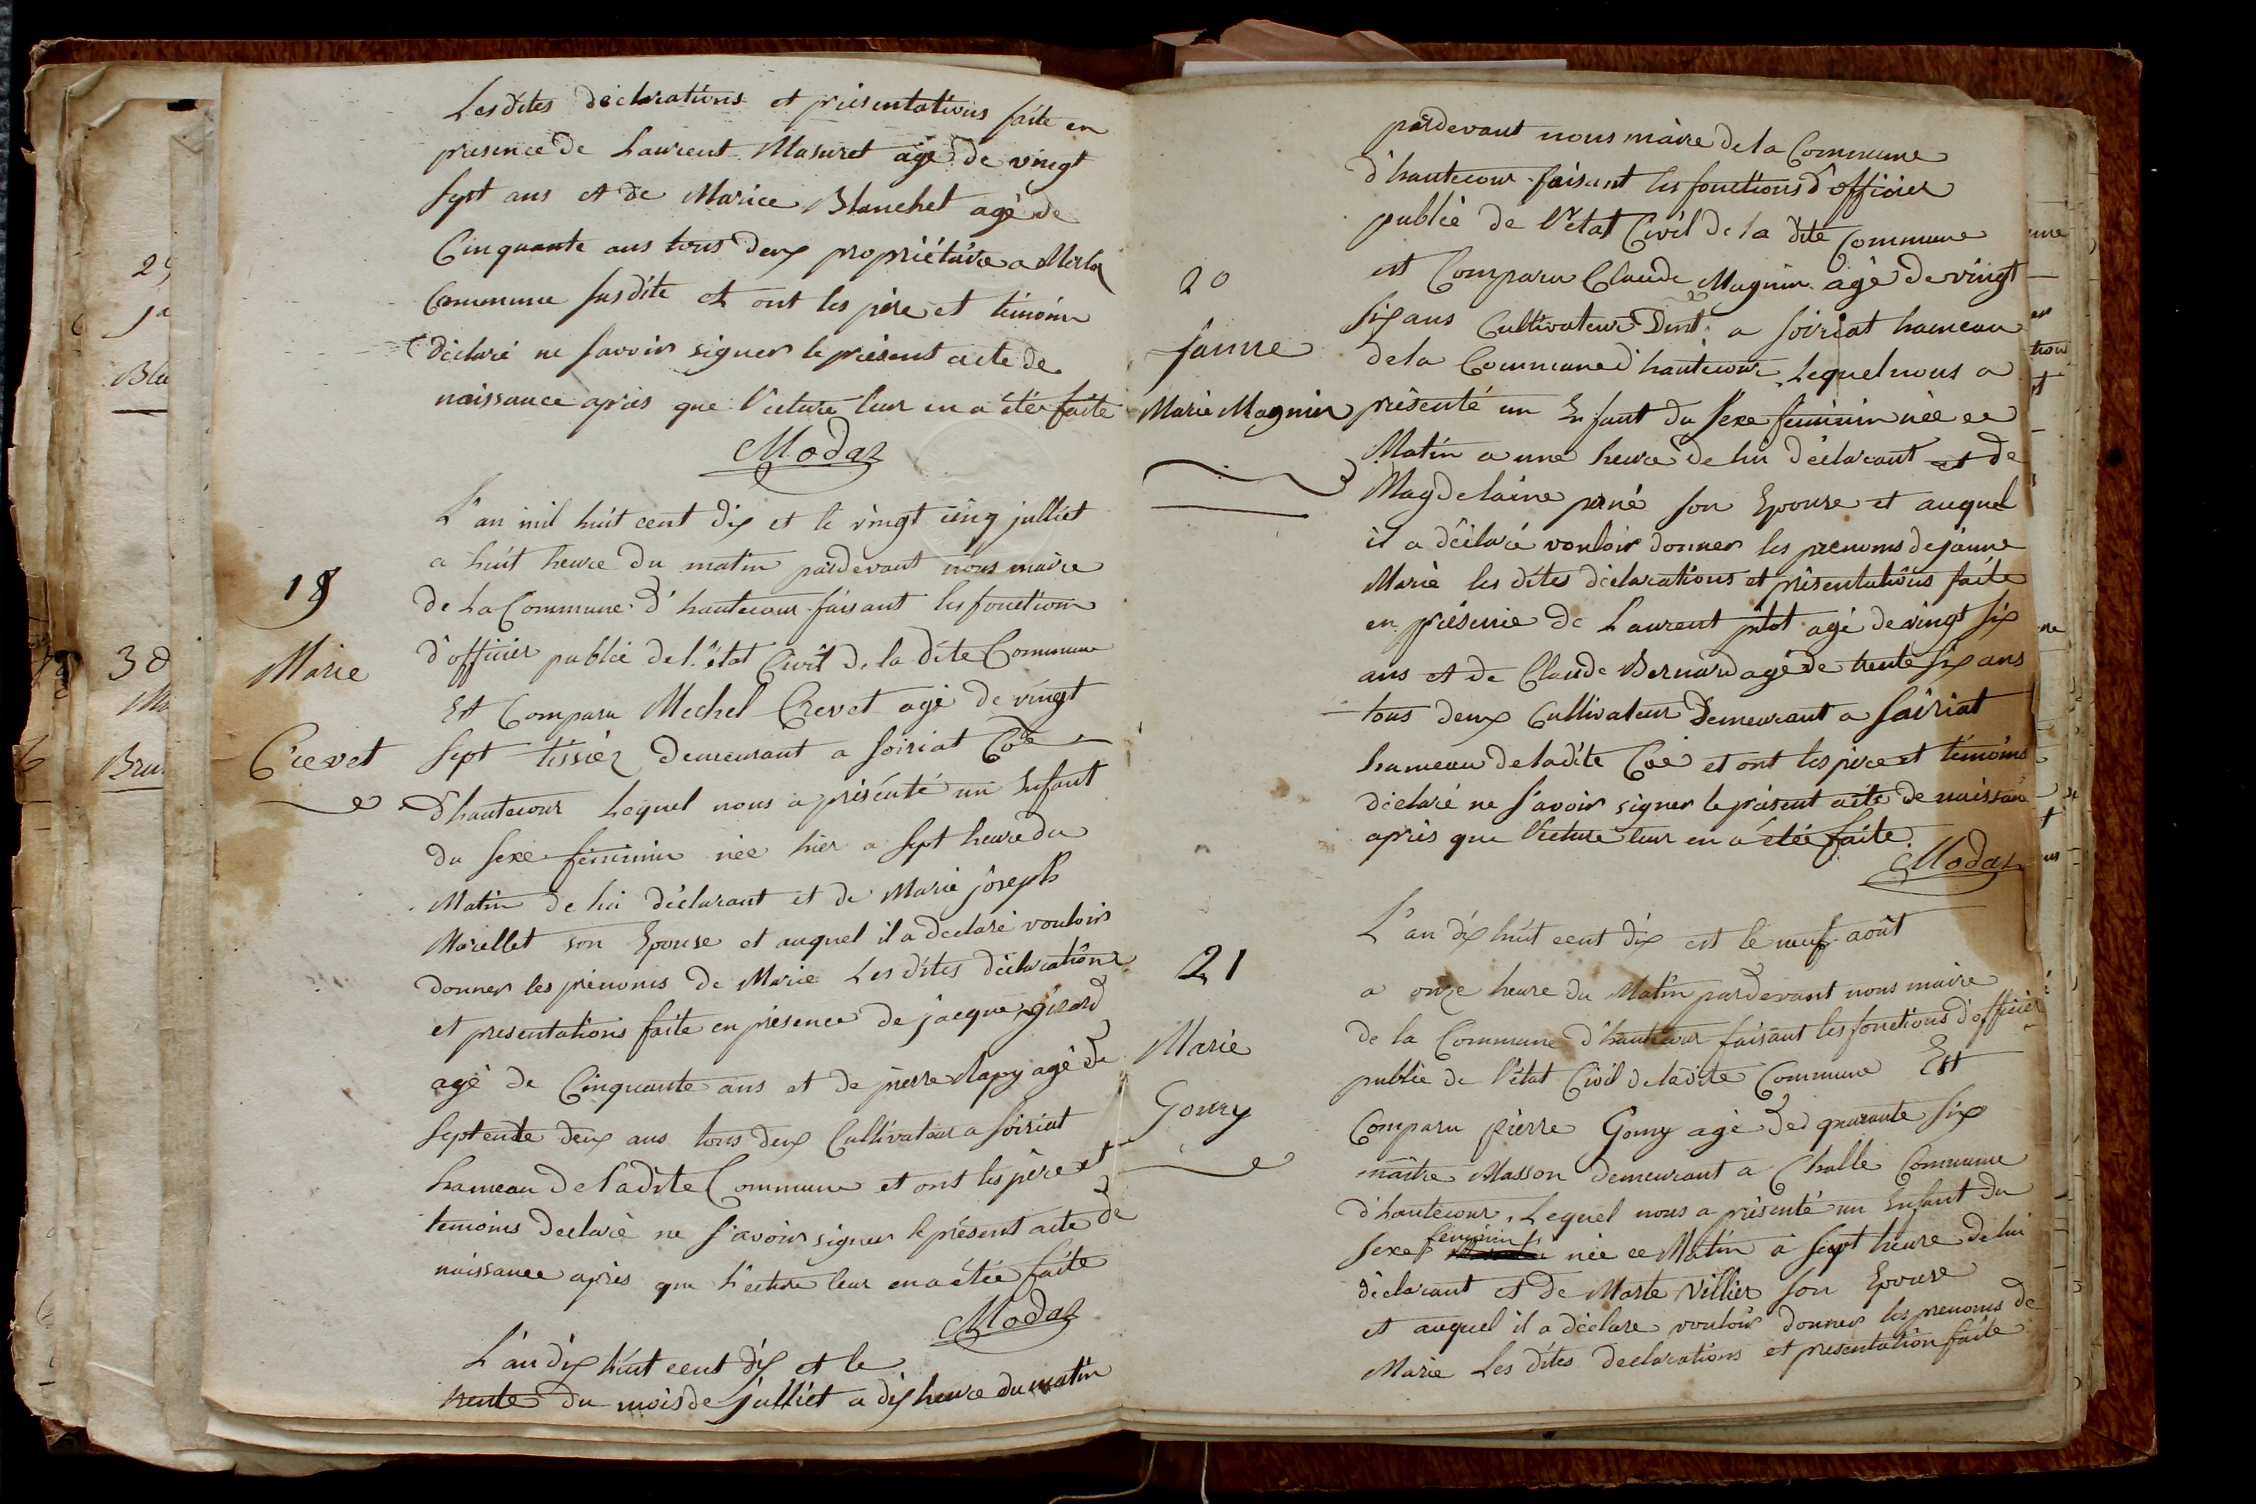 Les dites déclarations et présentations faite en
presence de Laurent Masuret agé de vingt
sept ans et de Marice Blanchet agé de
Cinquante ans tous deux propriétaire a Merla
Commune susdite et ont les père et témoins
déclaré ne savoir signer le présent acte de
naissance après que lecture leur en a étée faite
Modaz
18
Marie
Crevet
L'an mil huit cent dix et le vingt cinq julliet
a huit heure du matin pardevant nous maire
de la Commune d'hautecour faisant les fonction
d'officier public de l'état Civil de la dite Commune
Est Comparu Mechel Crevet agé de vingt
sept tissier demeurant a soiriat Coe
d'hautecour lequel nous a présenté un Enfant
du sexe féminin née hier a sept heure du
Matin de lui déclarant et de Marie joseph
Morellet son Epouse et auquel il a declaré vouloir
donner les prénoms de Marie Les dites déclaration
et presentations faite en présence de jacque girard
agé de Cinquante ans et de pierre Mapy agé de
septente deux ans tous deux Cultivateur a soiriat
hameau de ladite Commune et ont les père et
temoins declaré ne s'avoir signer le présent acte de
naissance après que l'ecture leur en a étée faite
Modaz
L'an dix huit cent dix et le
trente du mois de julliet a dix heure du matin
20
janne
Marie Magnin
pardevant nous maire de la Commune
d'hautecour faisant les fonctions d'officier
public de l'état Civil de la dite Commune
est Comparu Claude Magnin agé de vingt
six ans Cultivateur Dmt a soiriat hameau
de la Commune d'hautecour Lequel nous a
présenté un Enfant du sexe féminin née ce
Matin a une heure de lui déclarant et de
Magdelaine perné son Epouse et auquel
il a déclaré vouloir donner les prenoms de janne
Marie les dites déclarations et présentations faite
en présence de Laurent pitot agé de vingt six
ans et de Claude Bernard agé de trente six ans
tous deux Cultivateur Demeurant a soiriat
hameau de ladite Coe et ont les père et témoins
déclaré ne s'avoir signer le présent acte de naissan
après que l'ecture leur en a étée faite.
Modaz
21
Marie
Gomy
L'an dix huit cent dix est le neuf août
a onze heure du Matin pardevant nous maire
de la Commune d'hautecour faisant les fonctions d'officier
public de l'état Civil de ladite Commune Est
Comparu pierre Gomy agé de quarante six
maître Masson demeurant a Challe Commune
d'hautecour, Lequel nous a présenté un Enfant du
sexe féminin née ce Matin a sept heure de lui
déclarant et de Marte Villier son Epouse
et auquel il a déclare vouloir donner les prenoms de
Marie Les dites declarations et presentation faite